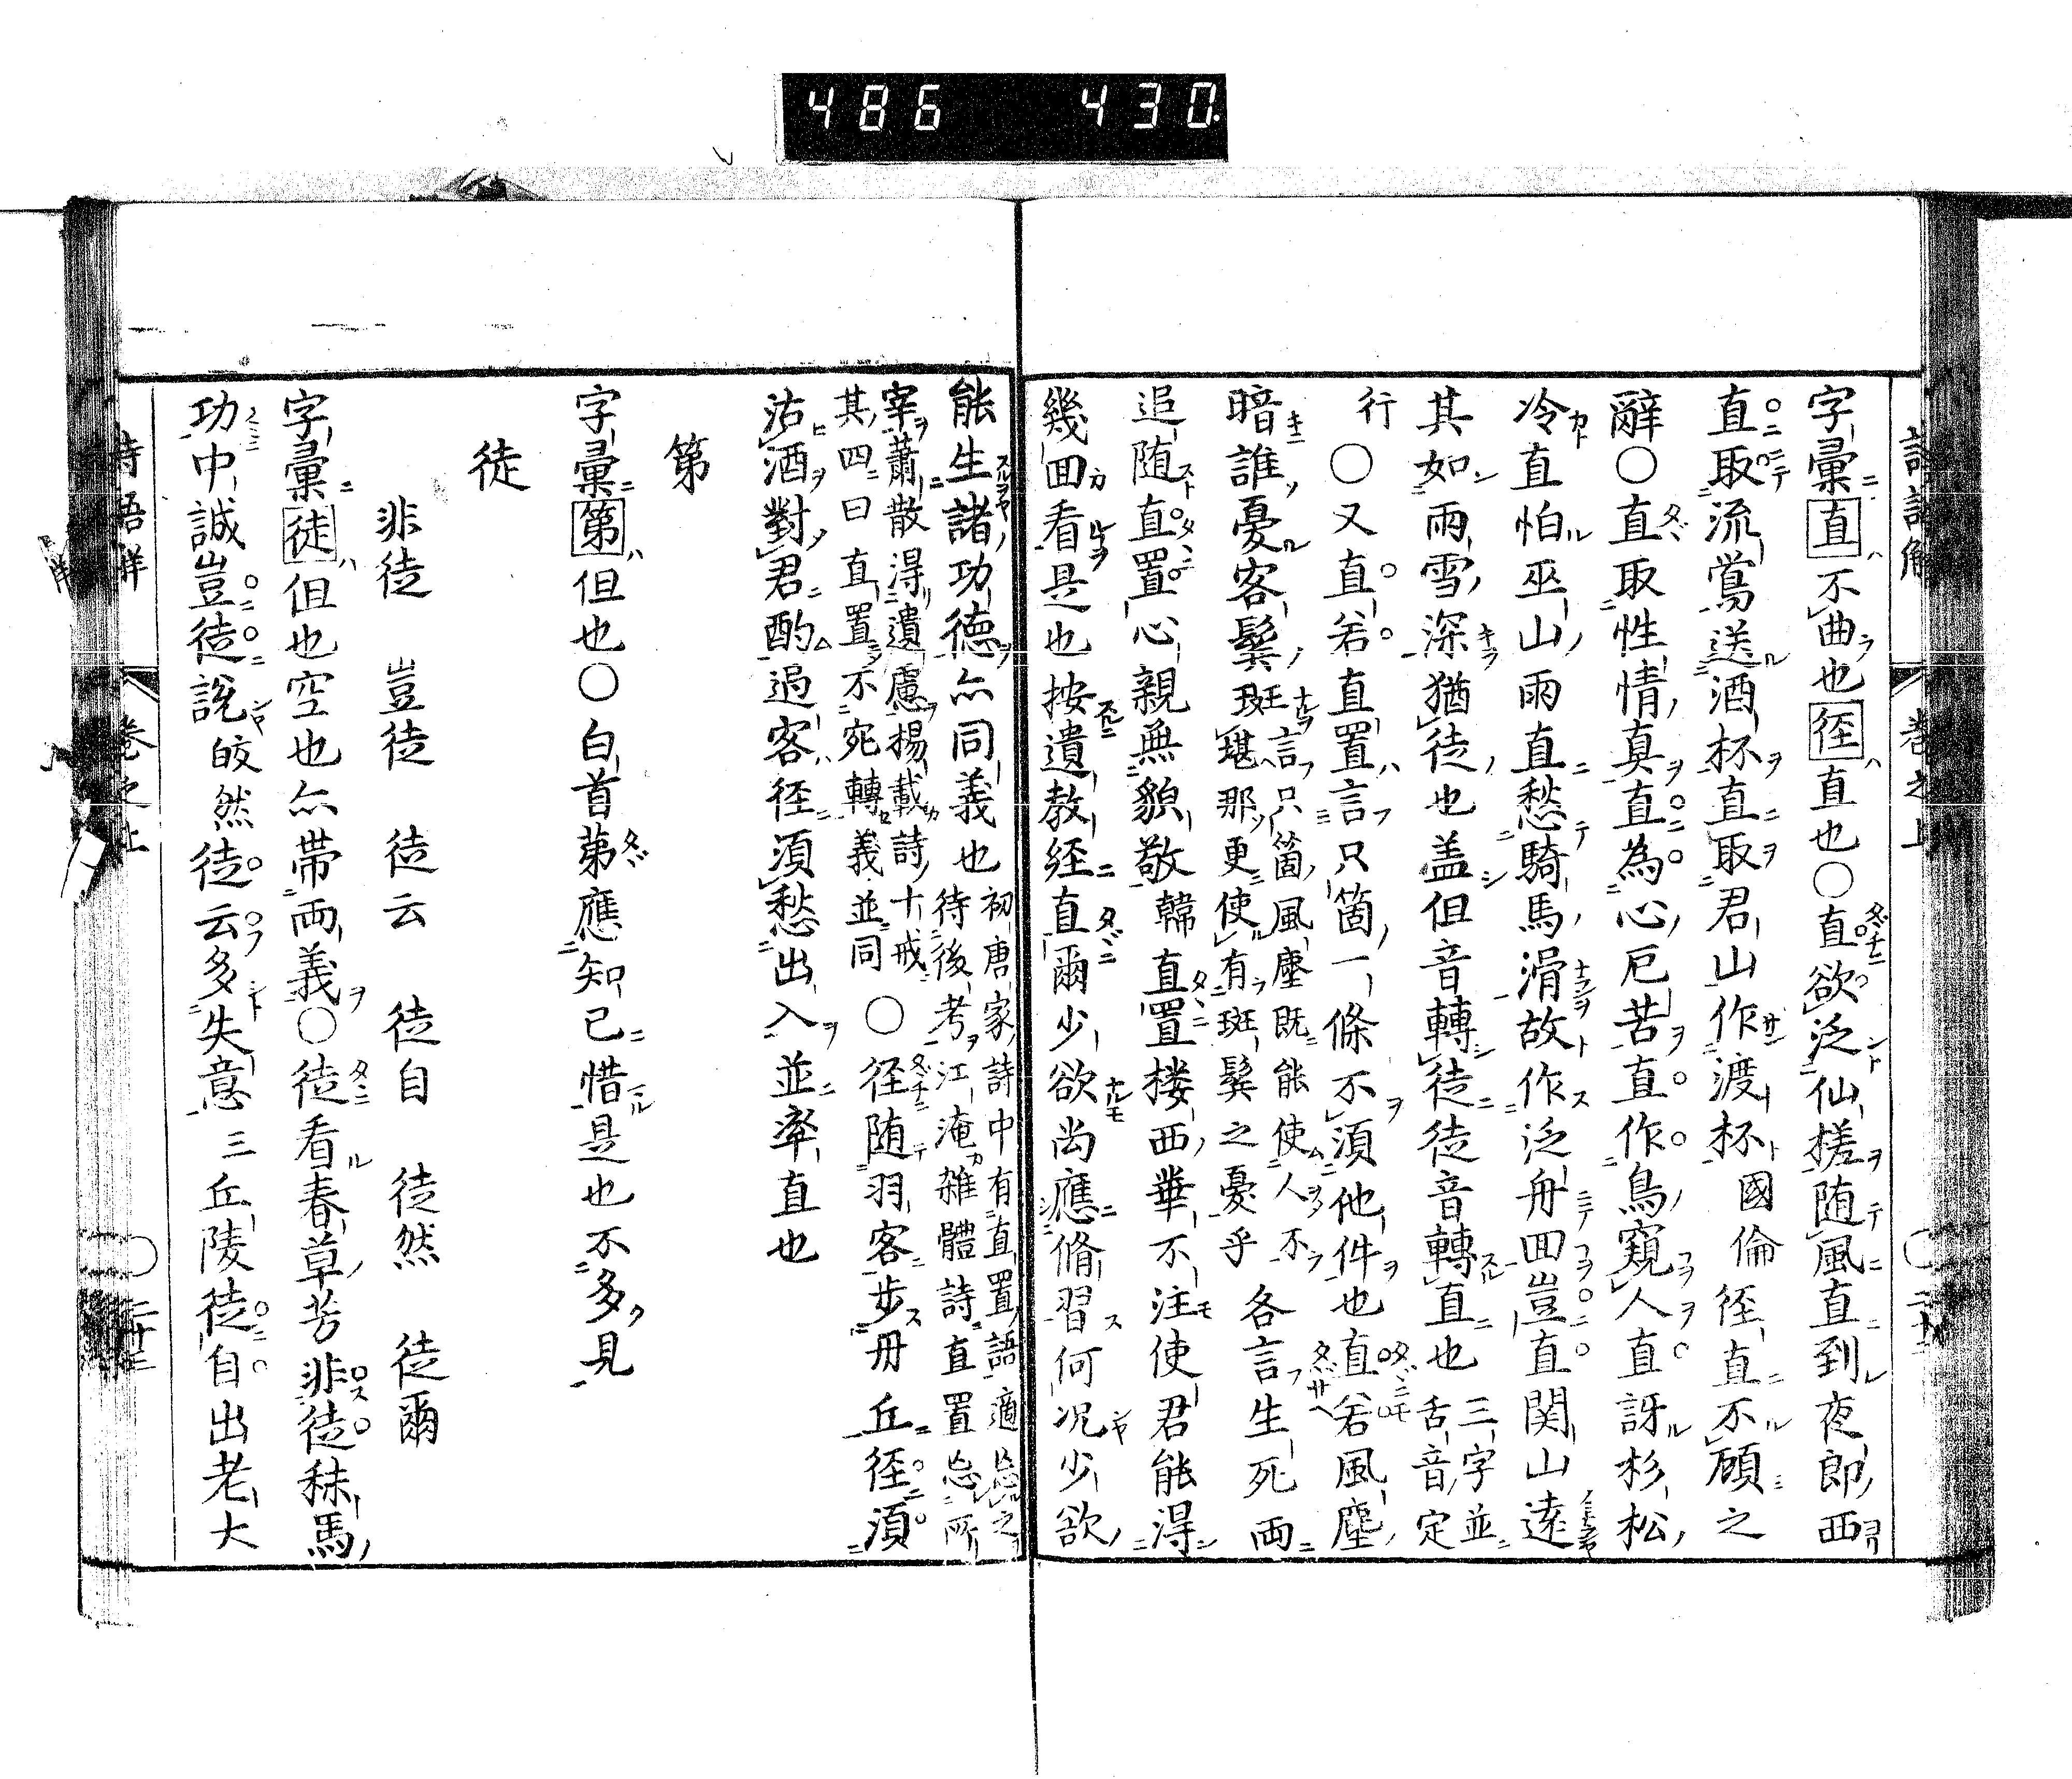 486 430
字彙直不曲也径直也〇直欲泛仙槎随風直到夜郎西
直取流鴬送酒杯直取君山作渡杯國倫径直不顧之
辭〇直取性情真直為心厄苦直作鳥窺人直訝杉松
冷直怕巫山雨直愁騎馬滑故作泛舟回豈直関山遠
其如雨雪深猶徒也盖但音轉徒徒音轉直也三字並
舌音定
行〇又直若直置言只箇一條不須他件也直若風塵
暗誰憂客鬂斑言只箇風塵既能使人不
堪那更使有斑鬂之憂乎各言生死両
追随直置心親無貌敬韓直置楼西華不注使君能得
幾回看是也按遺教経直爾少欲尚應脩習何况少欲
能生諸功德亦同義也初唐家詩中有直置語適忘之
待後考江淹雜體詩直置忘所
宰蕭散得遺慮揚載詩十戒
其四曰直置不宛轉義並同〇径随羽客步丹丘径須
沽酒對君酌過客径須愁出入並率直也
第
字彙第但也〇白首苐應知己惜是也不多見
徒
非徒 豈徒 徒云 徒自 徒然 徒爾
字彙徒但也空也亦帯両義〇徒看春草芳非徒秣馬
功中誠豈徒説皎然徒云多失意三丘陵徒自出老大
巻之上